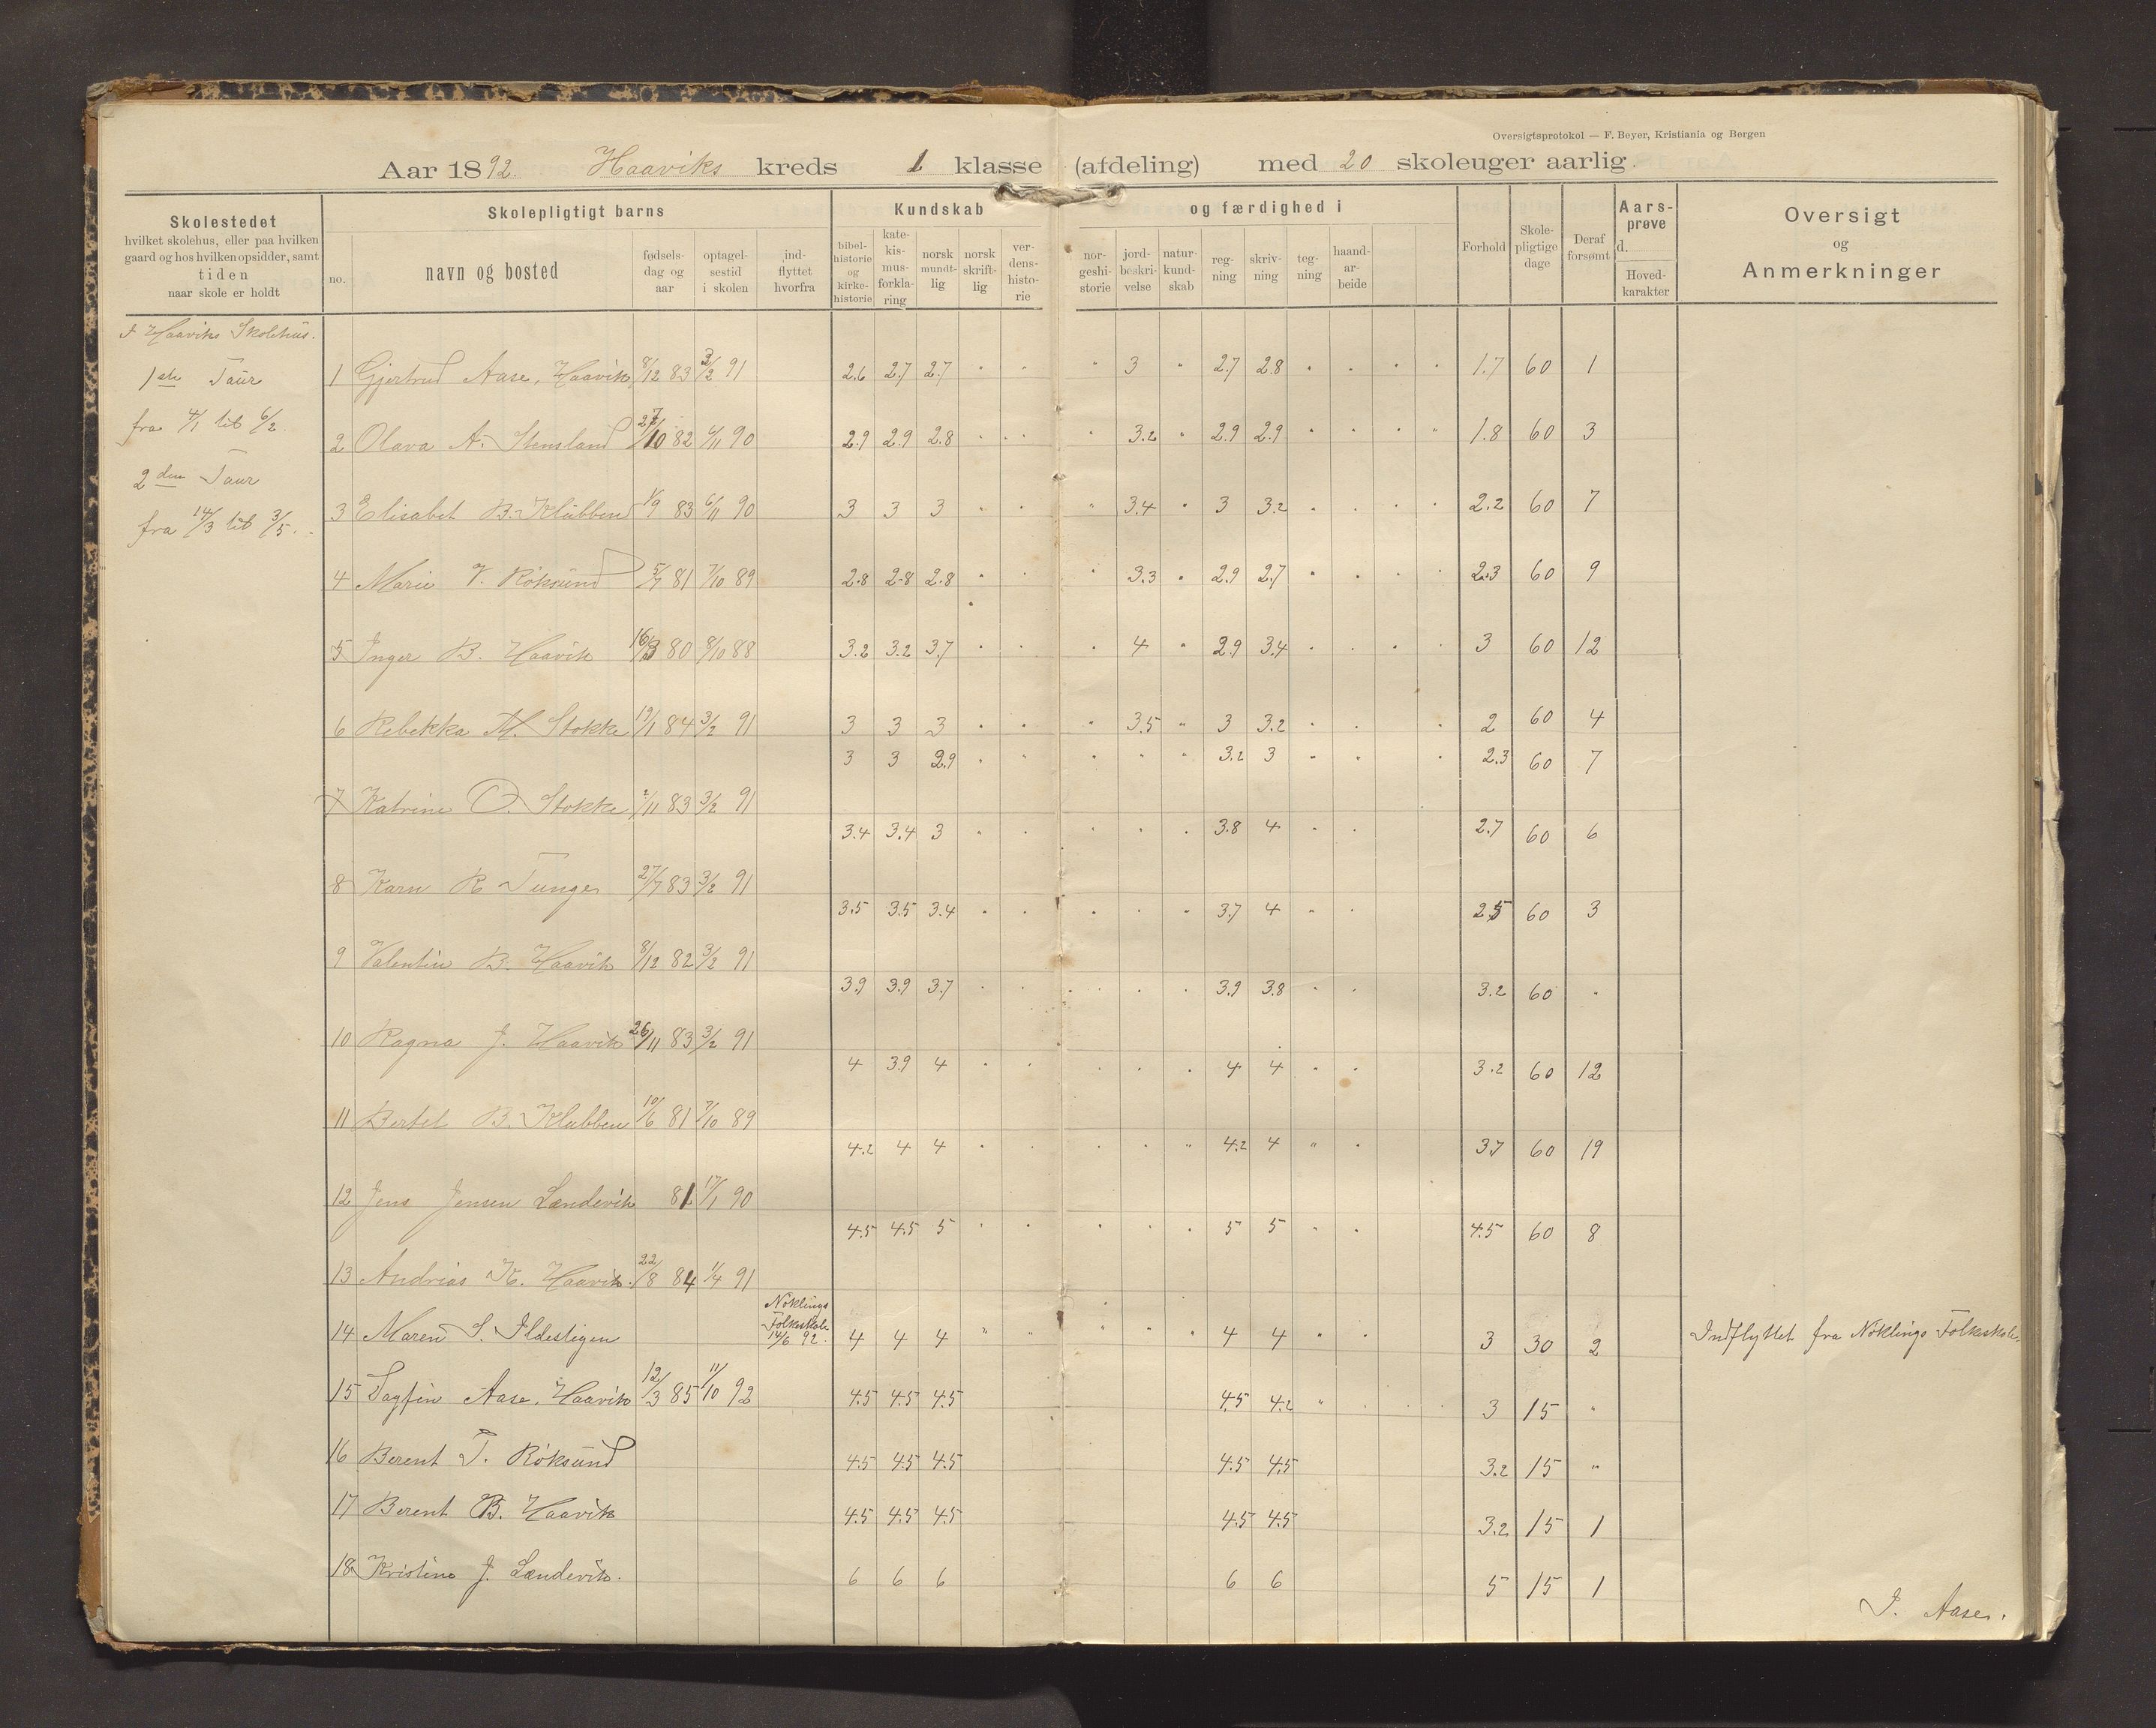 Oversigtsprotokol — F. Beyer, Kristiania og Bergen
Aar 1892. Haaviks kreds 1 klasse (afdeling) med 20 skoleuger aarlig.
Skolestedet
hvilket skolehus, eller paa hvilken
gaard og hos hvilken opsidder, samt
tiden
naar skole er holdt
Skolepligtigt barns
no.
navn og bosted
fødsels-
dag og
aar
optagel-
sestid
i skolen
ind-
flyttet
hvorfra
Kundskab og færdighed i
bibel-
historie
og
kirke-
historie
kate-
kis-
mus-
forkla-
ring
norsk
mundt-
lig
norsk
skrift-
lig
ver-
dens-
histo-
rie
nor-
geshi-
storie
jord-
beskri-
velse
natur-
kund-
skab
reg-
ning
skriv-
ning
teg-
ning
haand-
ar-
beide
Forhold
Skole-
pligtige
dage
Deraf
forsømt
Aars-
prøve
d.
Hoved-
karakter
Oversigt
og
Anmerkninger
I Haaviks Skolehus.
1ste Tour
fra 4/1 til 6/2.
2den Tour
fra 14/3 til 3/5.
1 Gjertrud Aase, Haavik 8/12 83 3/2 91 2.6 2.7 2.7 " " " 3 " 2.7 2.8 " " " " 1.7 60 1
2 Olava A. Stensland 27/10 82 6/11 90 2.9 2.9 2.8 " " " 3.2 " 2.9 2.9 " " " " 1.8 60 3
3 Elisabet B. Klubben 1/9 83 6/11 90 3 3 3 " " " 3.4 " 3 3.2 " " " " 2.2 60 7
4 Marie V. Röksund 5/7 81 7/10 89 2.8 2.8 2.8 " " " 3.3 " 2.9 2.7 " " " " 2.3 60 9
5 Inger B. Haavik 16/3 80 8/10 88 3.2 3.2 3.7 " " " 4 " 2.9 3.4 " " " " 3 60 12
6 Rebekka M. Stokke 19/1 84 3/2 91 3 3 3 " " " 3.5 " 3 3.2 " " " 2 60 4
7 Katrine O. Stokke 2/11 83 3/2 91 3 3 2.9 " " " " " 3.2 3 " " " 2.3 60 7
8 Karn R Tunge 27/7 83 3/2 91 3.4 3.4 3 " " " " " 3.8 4 " " 2.7 60 6
9 Valentin B. Haavik 8/12 82 3/2 91 3.5 3.5 3.4 " " " " " 3.7 4 " " 2.5 60 3
10 Ragna J. Haavik 26/11 83 3/2 91 3.9 3.9 3.7 " " " " " 3.9 3.8 " " 3.2 60 "
11 Bertel B. Klubben 10/6 81 7/10 89 4 3.9 4 " " " " " 4 4 " " 3.2 60 12
12 Jens Jensen Lændevik 81 17/1 90 4.2 4 4 " " " " " 4.2 4 " " 3.7 60 19
13 Andrias K. Haavik. 22/8 84 1/4 91 4.5 4.5 5 " " " " " 5 5 " " 4.5 60 8
14 Maren S. Ildestigen Nöklings Folkeskole 14/6 92. 4 4 4 " " " " " 4 4 " " 3 30 2 Indflyttet fra Nöklings Folkeskole.
15 Dagfin Aase, Haavik 12/3 85 11/10 92 4.5 4.5 4.5 4.5 4.2 " " " " 3 15 "
16 Berent T. Röksund 4.5 4.5 4.5 4.5 4.5 3.2 15 "
17 Berent B. Haavik 4.5 4.5 4.5 4.5 4.5 3.2 15 1
18 Kristine J. Lændevik. 6 6 6 6 6 5 15 1
J. Aase.